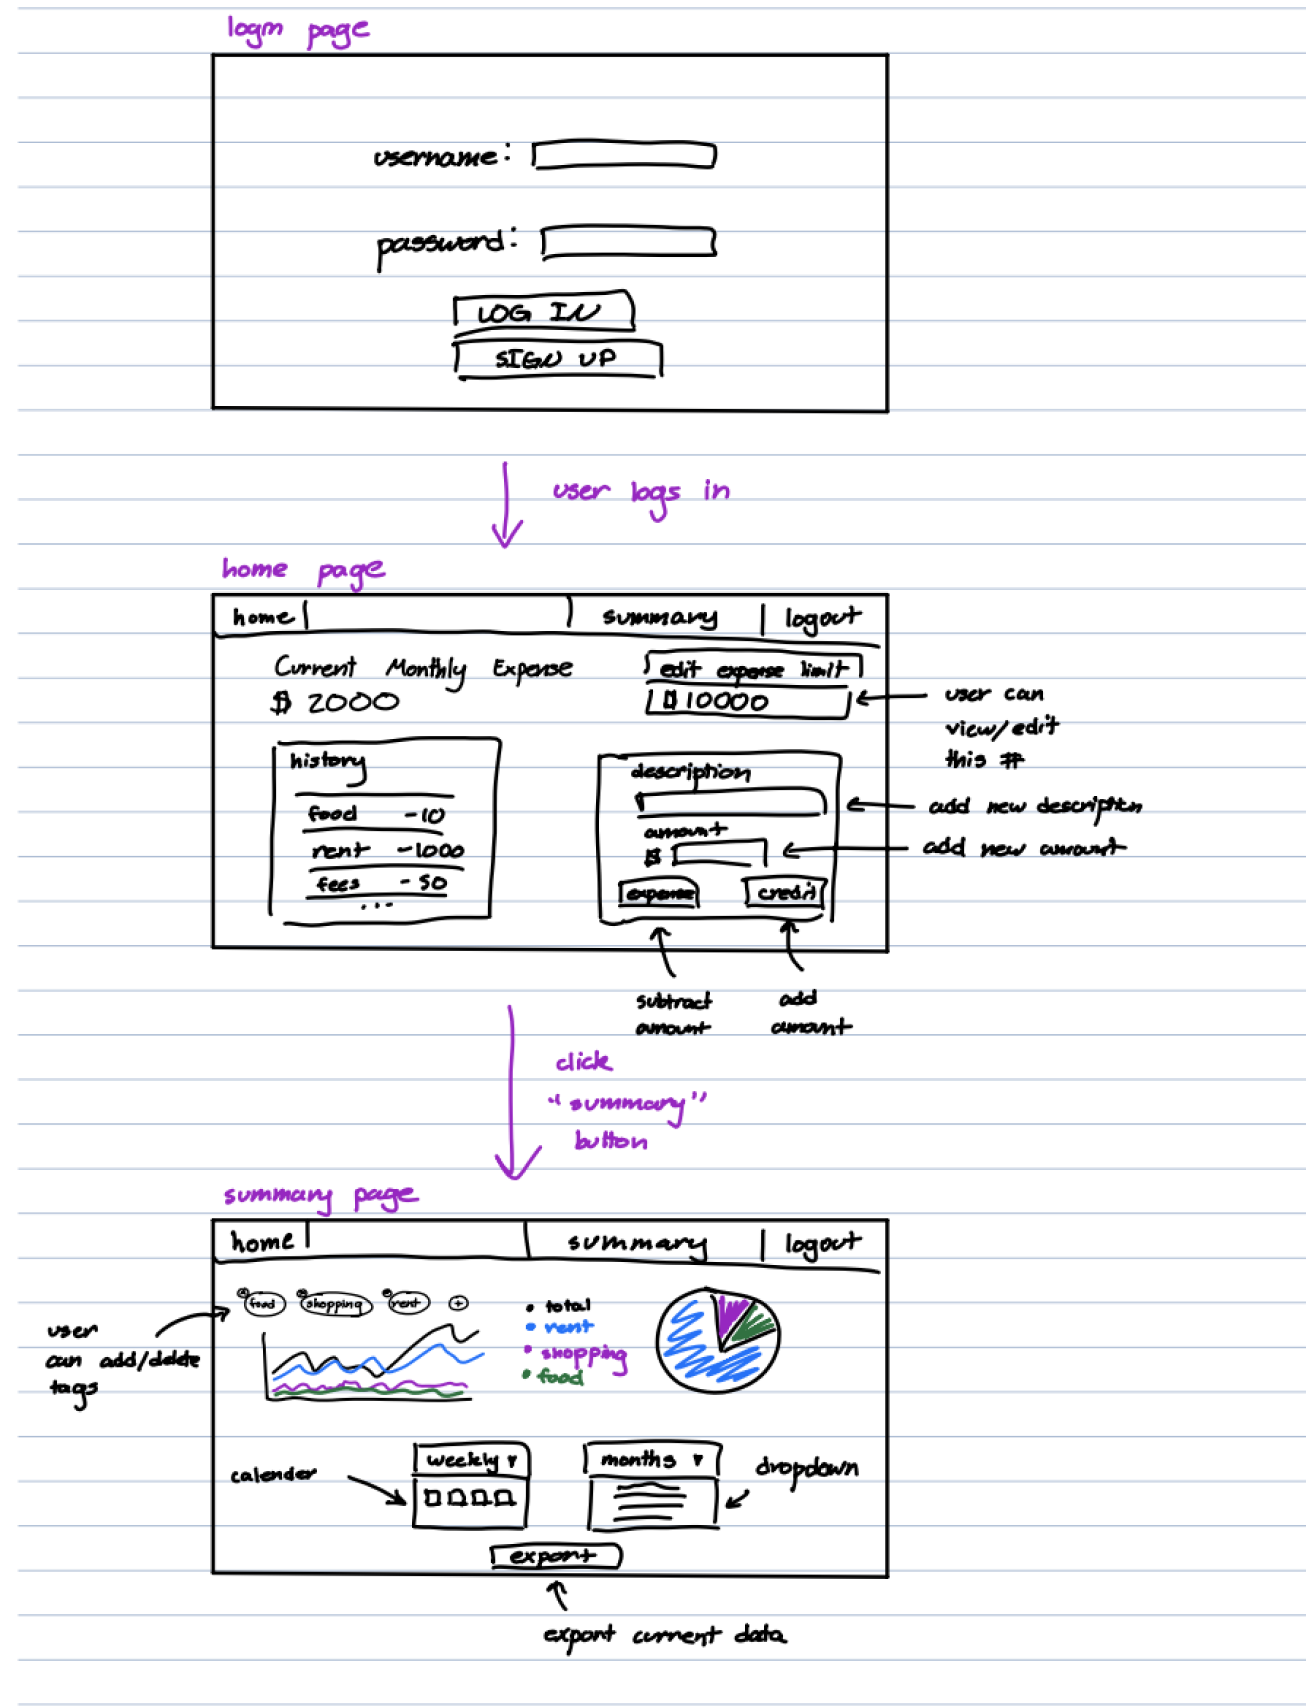 login page
username:
password:
LOG IN
SIGN UP
user logs in
home page
home summary logout
Current Monthly Expense
$ 2000
edit expense limit
$10000
user can
view/edit
this #
history
food -10
rent -1000
fees -50
...
description
add new descriptn
amount
$
add new amount
expense credit
subtract
amount
add
amount
click
"summary"
button
summary page
home summary logout
food shopping rent +
user
can add/delete
tags
• total
• rent
• shopping
• food
calender
weekly ▼
months ▼
dropdown
export
export current data